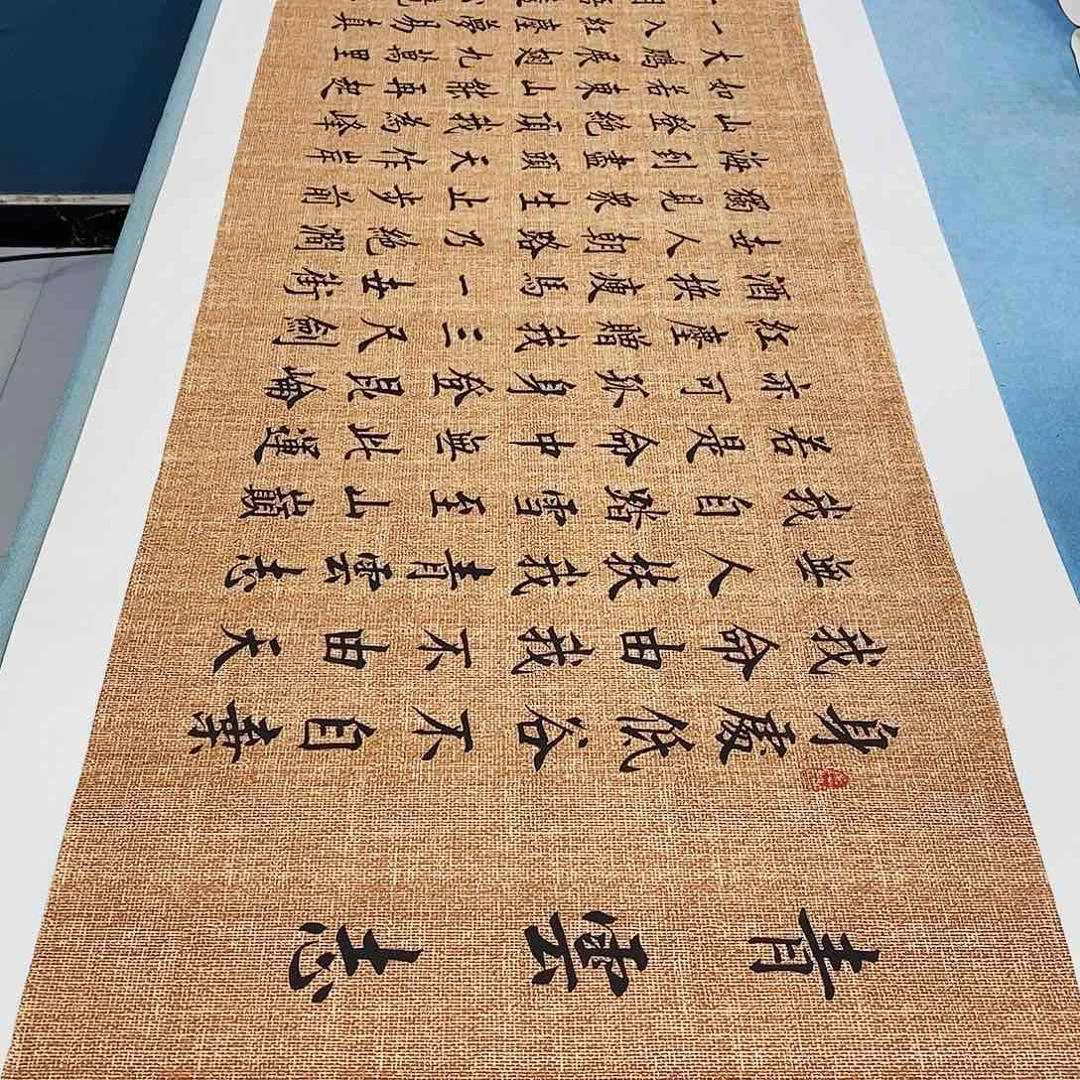 青雲志
身處低谷不自棄
我命由我不由天
無人扶我青雲志
我自踏雪至山巔
若是命中無此運
亦可孤身登昆崙
紅塵贈我三尺劍
酒换瘦馬一世街
世人朝路乃絕澗
獨見衆生止步前
海到盡頭天作岸
山登絕頂我為峰
如若東山能再起
大鵬展翅九萬里
一入紅塵夢易真